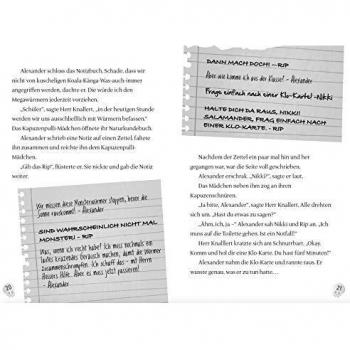 Alexander schloss das Notizbuch. Schade, dass wir
nicht von kuscheligen Koala-Känga-Was-auch-immer
angegriffen werden, dachte er. Die würde ich den
Megawürmern jederzeit vorziehen.
„Schüler", sagte Herr Knallert, „in der heutigen Stunde
werden wir uns ausschließlich mit Würmern befassen."
Das Kapuzenpulli-Mädchen öffnete ihr Naturkundebuch.
Alexander schrieb eine Notiz auf einen Zettel, faltete
ihn zusammen und reichte ihn dem Kapuzenpulli-
Mädchen.
„Gib das Rip", flüsterte er. Sie nickte und gab die Notiz
weiter.
Wir müssen diese Monsterwürmer stoppen, bevor die
Sonne rauskommt! - Alexander
SIND WAHRSCHEINLICH NICHT MAL
MONSTER! - RIP
Was, wenn ich recht habe? Ich muss nochmal ein
lautes kratzendes Geräusch machen, damit die Würmer
zusammenschrumpfen. Ich schaff das - mit Herrn
Hilfe. Aber es muss jetzt passieren!
- Alexander
20
DANN MACH DOCH! — RIP
Aber wie komme ich aus der Klasse? - Alexander
Frage einfach nach einer Klo-Karte! -Nikki
HALTE DICH DA RAUS, NIKKI!
SALAMANDER, FRAG EINFACH NACH
EINER KLO-KARTE. - RIP
Nachdem der Zettel ein paar Mal hin und her
gegangen war, war die Seite voll geschrieben.
Alexander erschrak. „Nikki?", sagte er laut.
Das Mädchen neben ihm zog an ihren
Kapuzenschnüren.
„Ja bitte, Alexander", sagte Herr Knallert. Alle drehten
sich um. „Hast du etwas zu sagen?"
„Ähm, ich, ja –" Alexander sah Nikki und Rip an. „Ich
muss auf die Toilette gehen. Ist ein Notfall!"
Herr Knallert kratzte sich am Schnurrbart. „Okay.
Komm und hol dir eine Klo-Karte. Du hast fünf Minuten!"
Alexander nahm die Klo-Karte und rannte raus. Er
wusste genau, was er zu tun hatte…
21